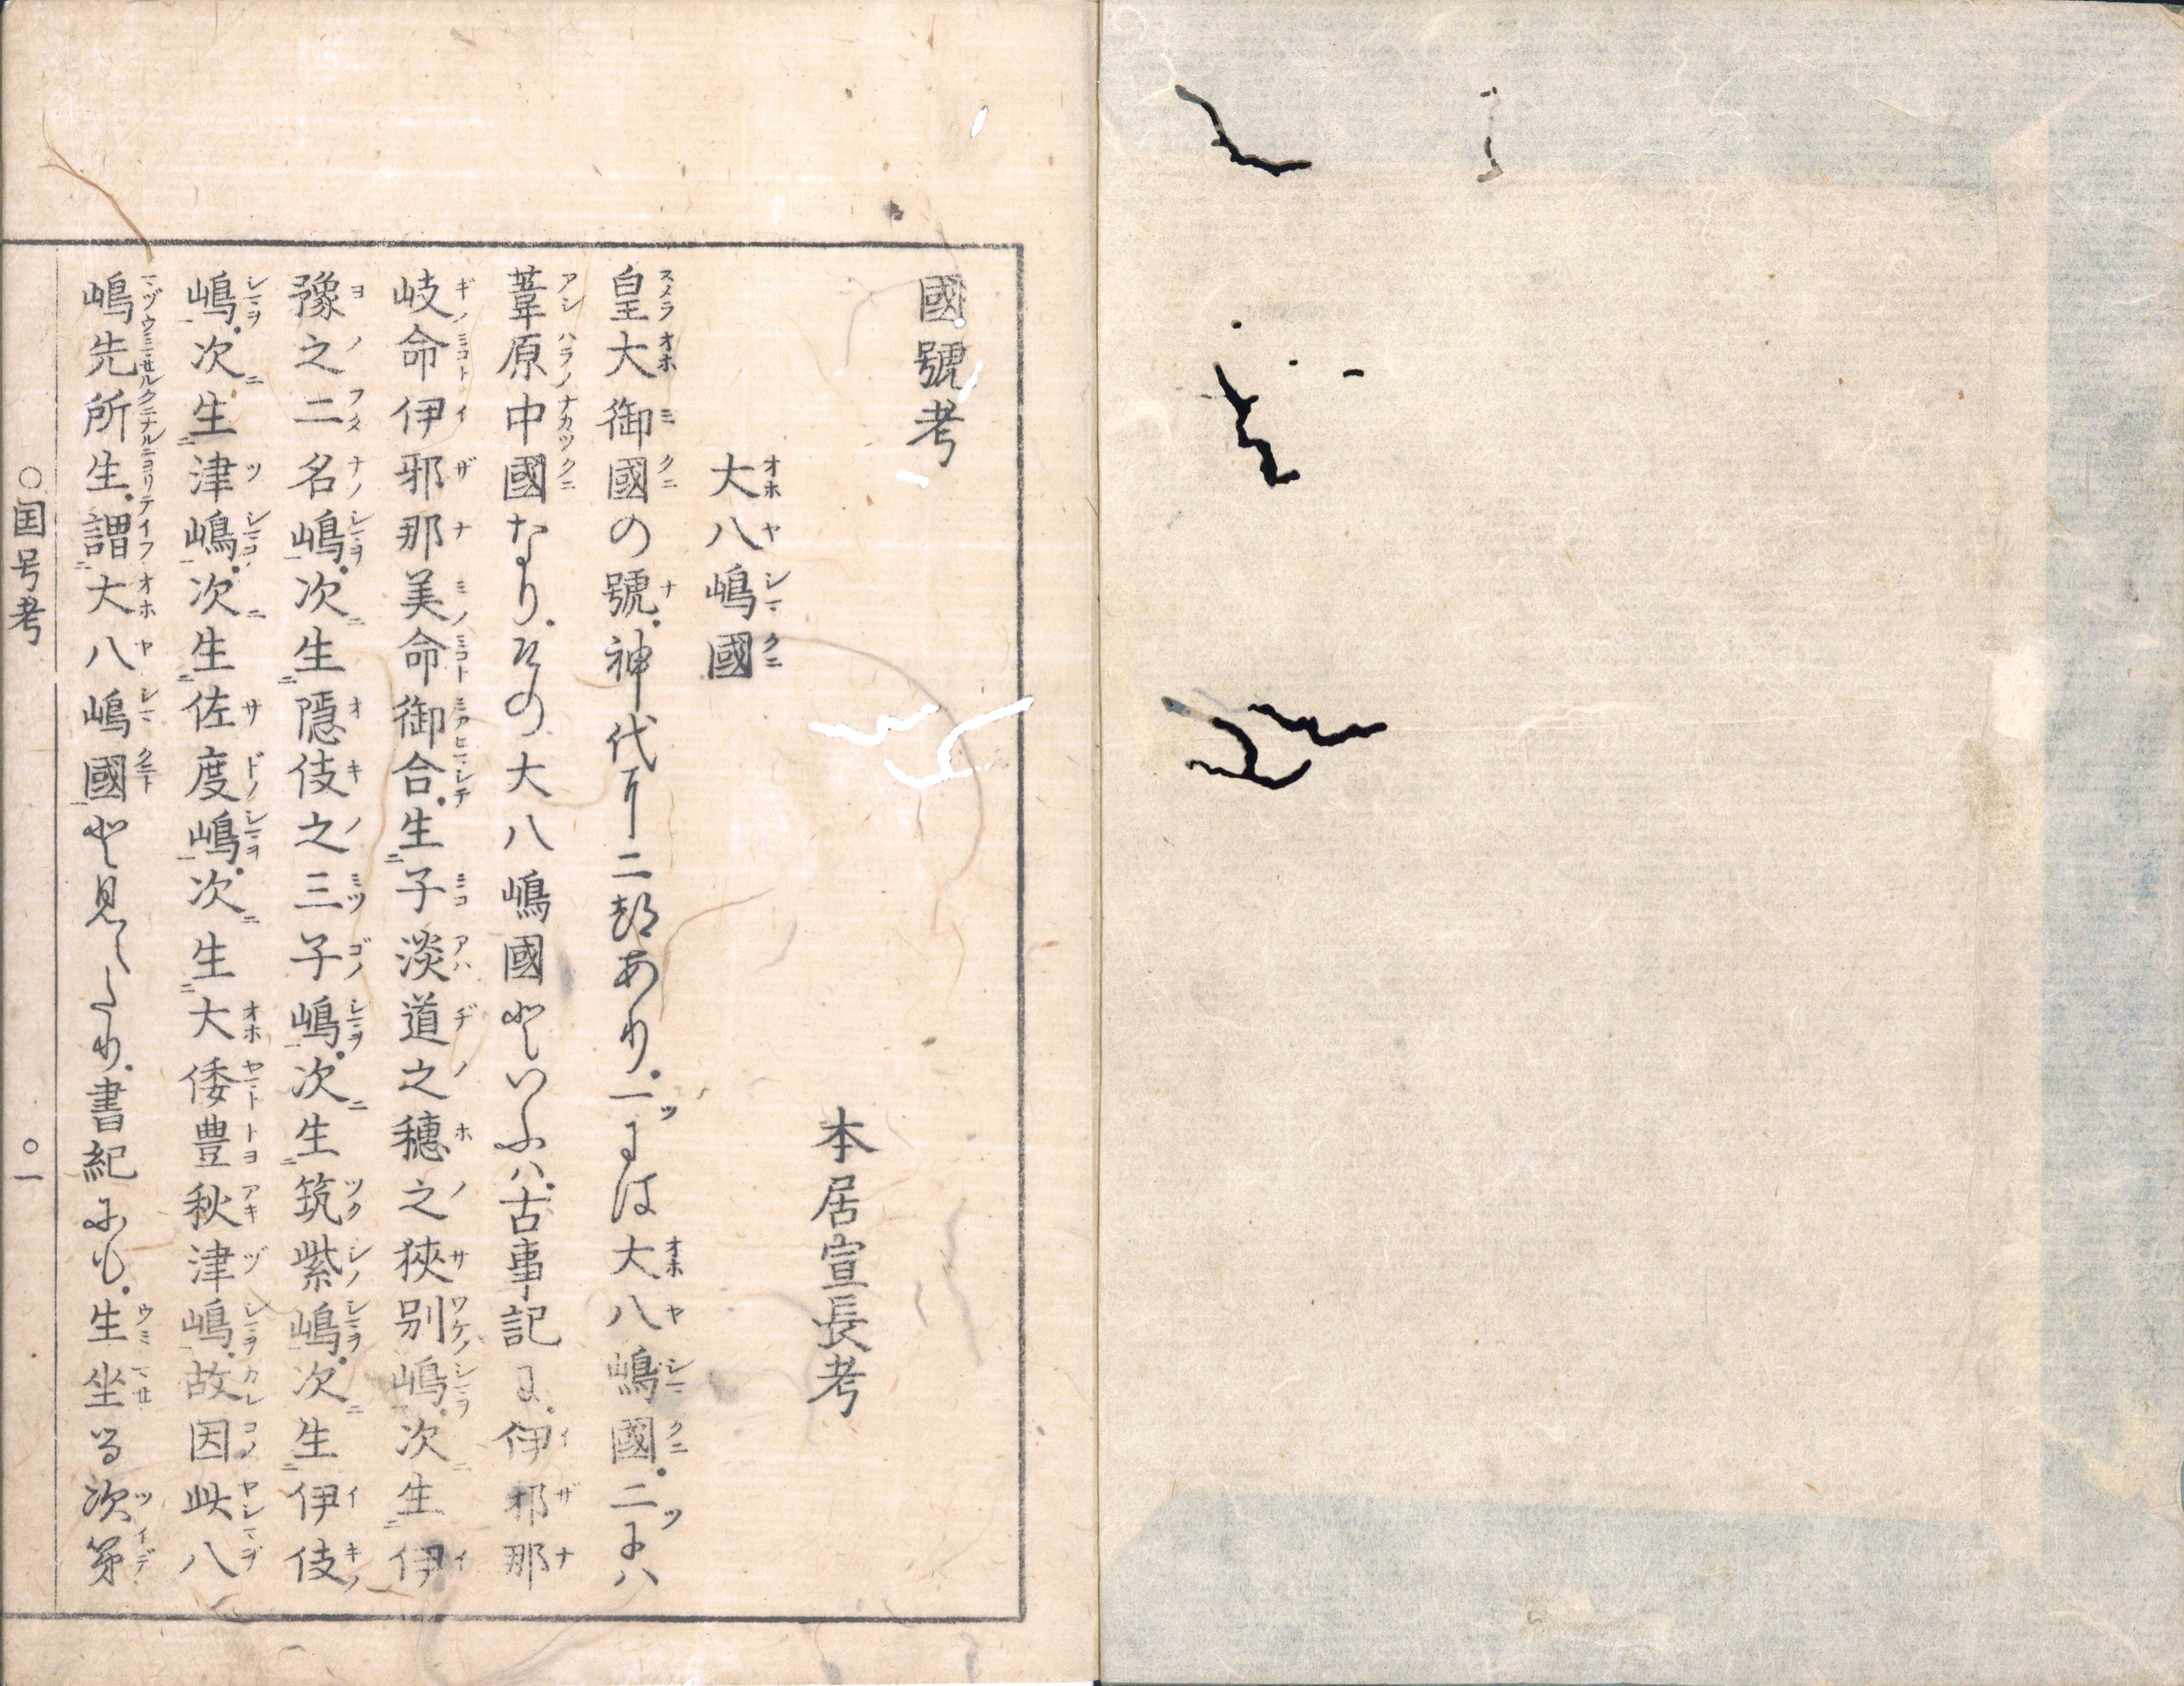 國號考
本居宣長考
大八嶋國
皇大御國の號。神代より二あり。一には大八嶋國。二には
葦原中國なり。その大八嶋國といふハ。古事記に。伊邪那
岐命伊邪那美命御合。生子淡道之穗之狹別嶋。次生伊
豫之二名嶋。次生隱伎之三子嶋。次生筑紫嶋。次生伊伎
嶋。次生津嶋。次生佐度嶋。次生大倭豊秋津嶋。故因此八
嶋先所生。謂大八嶋國と見えたり。書紀にも。生坐る次第
○国号考 ○一